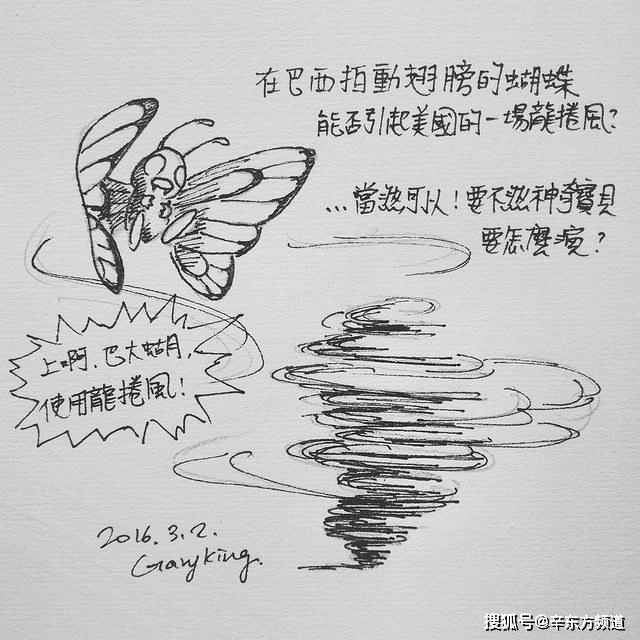 在巴西拍動翅膀的蝴蝶
能否引起美國的一場龍捲風?
...當然可以!要不然神奇寶貝
要怎麼演?
上啊,巴大蝴,
使用龍捲風!
2016.3.2.
GaryKing.
搜狐号@辛东方频道